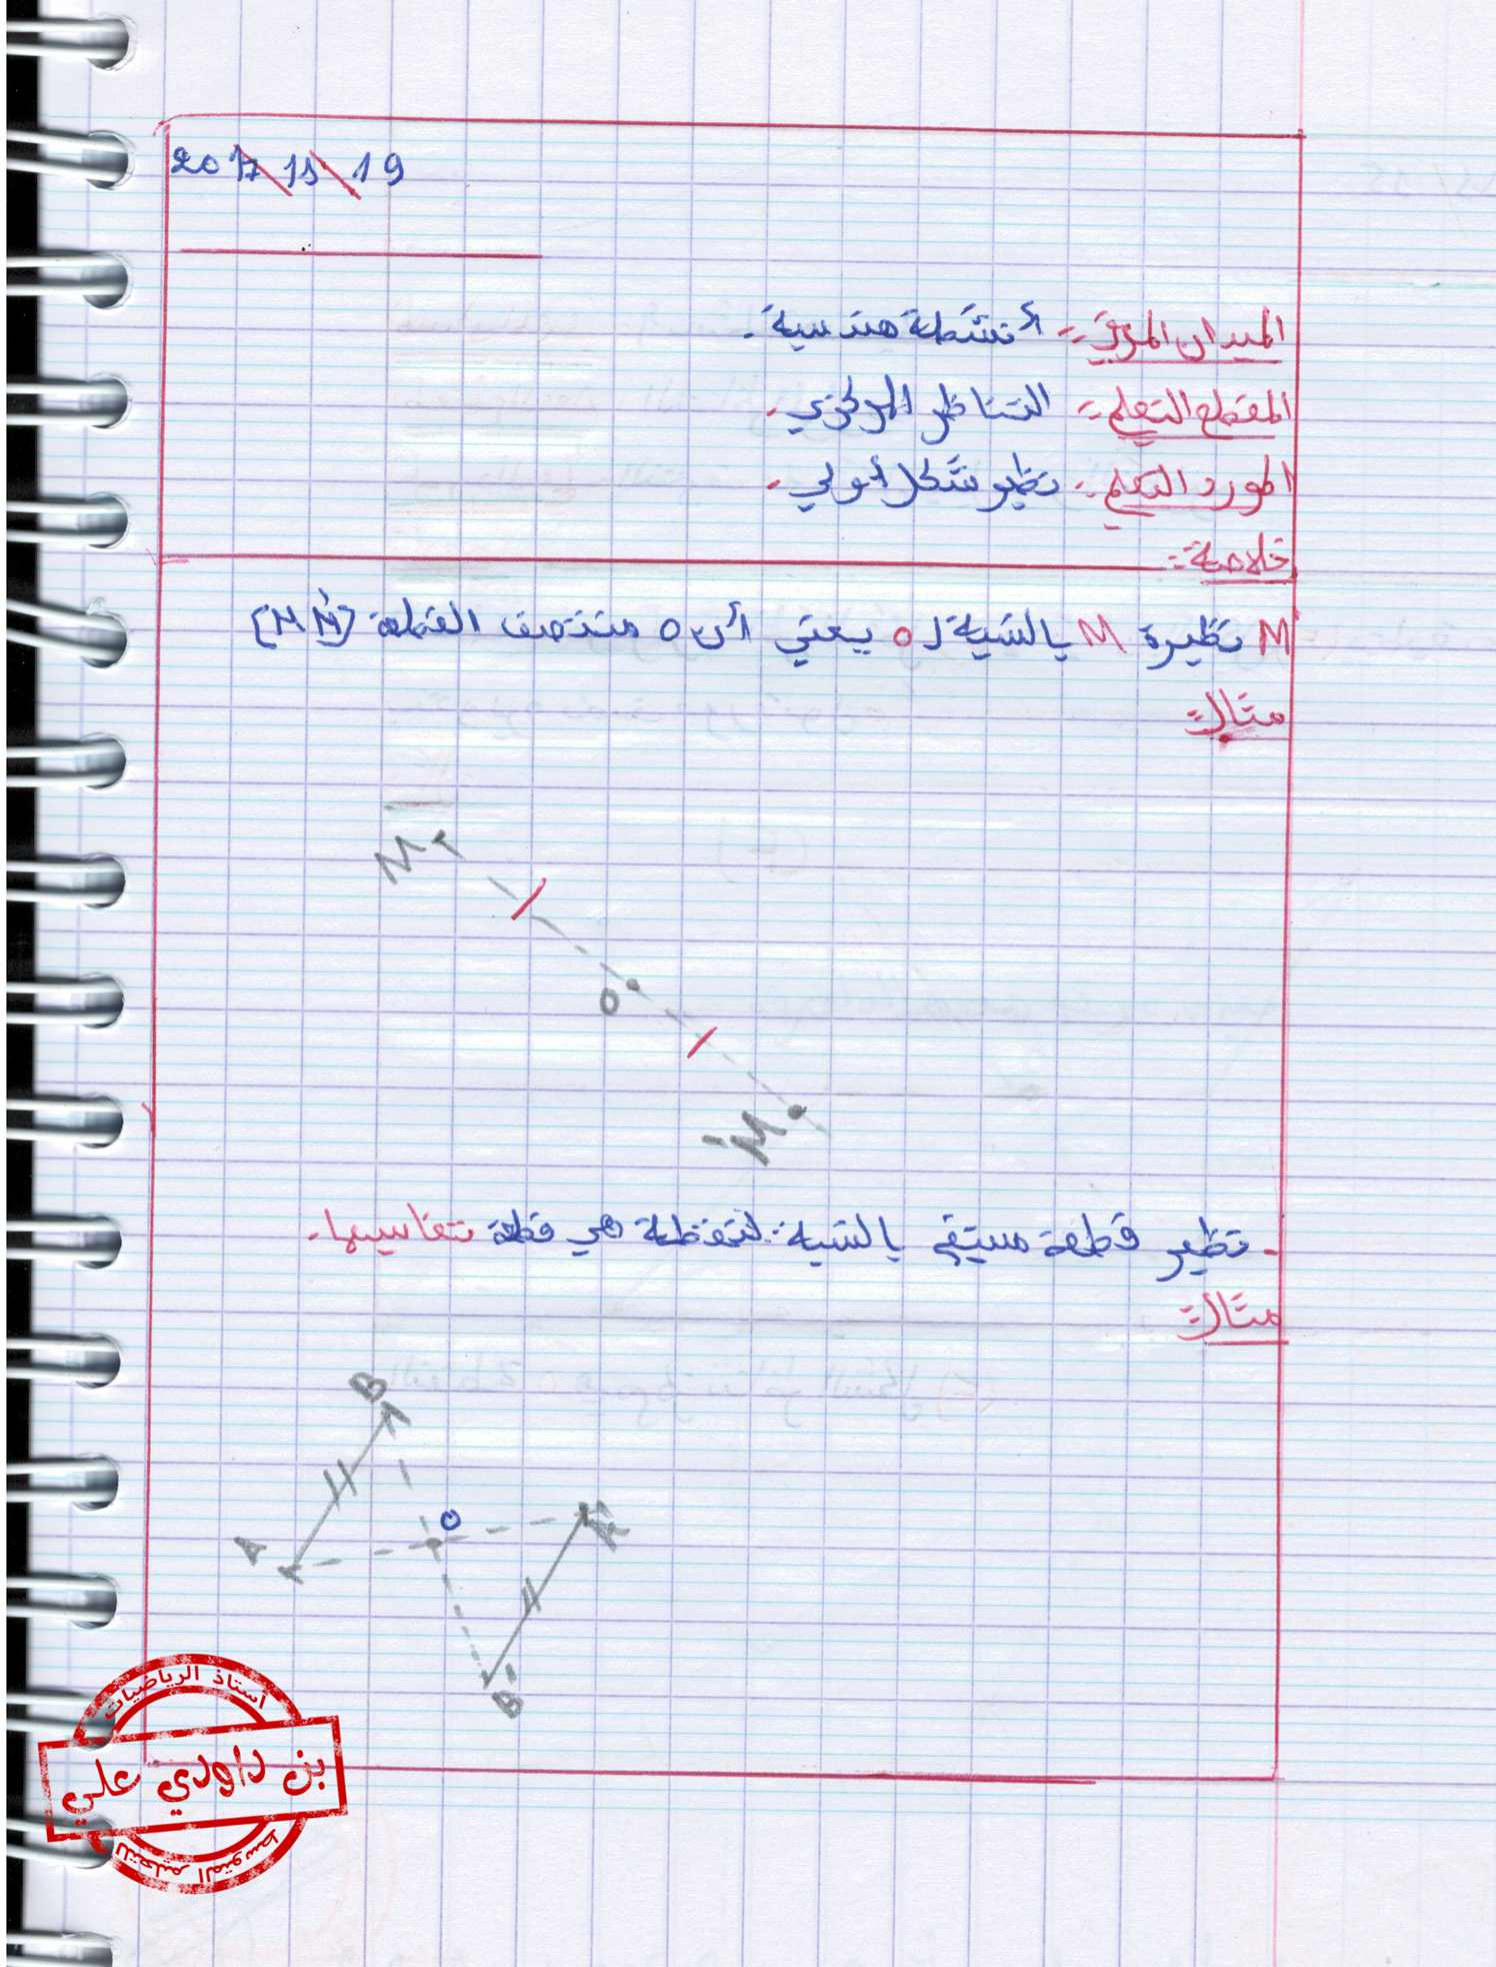 2017/11/19
الميدان المعرفي: أنشطة هندسية.
المقطع التعلمي: التناظر المركزي.
المورد التعلمي: نظير شكل أولي.
خلاصة:
M نظيرة M بالنسبة لـ O يعني أن O منتصف القطعة [MM']
مثال:
M
O
M'
- نظير قطعة مستقيم بالنسبة لنقطة هي قطعة تقايسها.
مثال:
B
O
A
A'
B'
أستاذ الرياضيات
بن داودي علي
للتعليم المتوسط